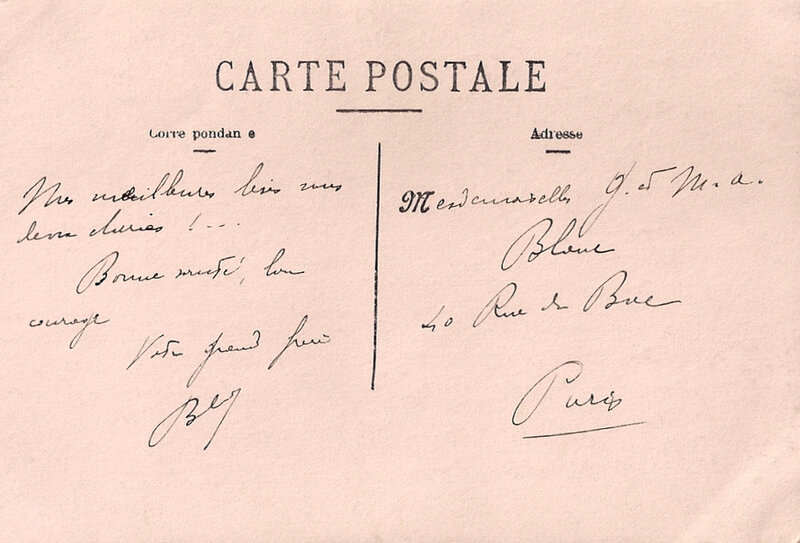 CARTE POSTALE
Corre pondan e
Mes meilleures bises mes
deux chéries !...
Bonne santé, bon
courage
Votre grand frère
Adresse
Mesdemoiselles G. et M. a.
Blanc
40 Rue du Bac
Paris